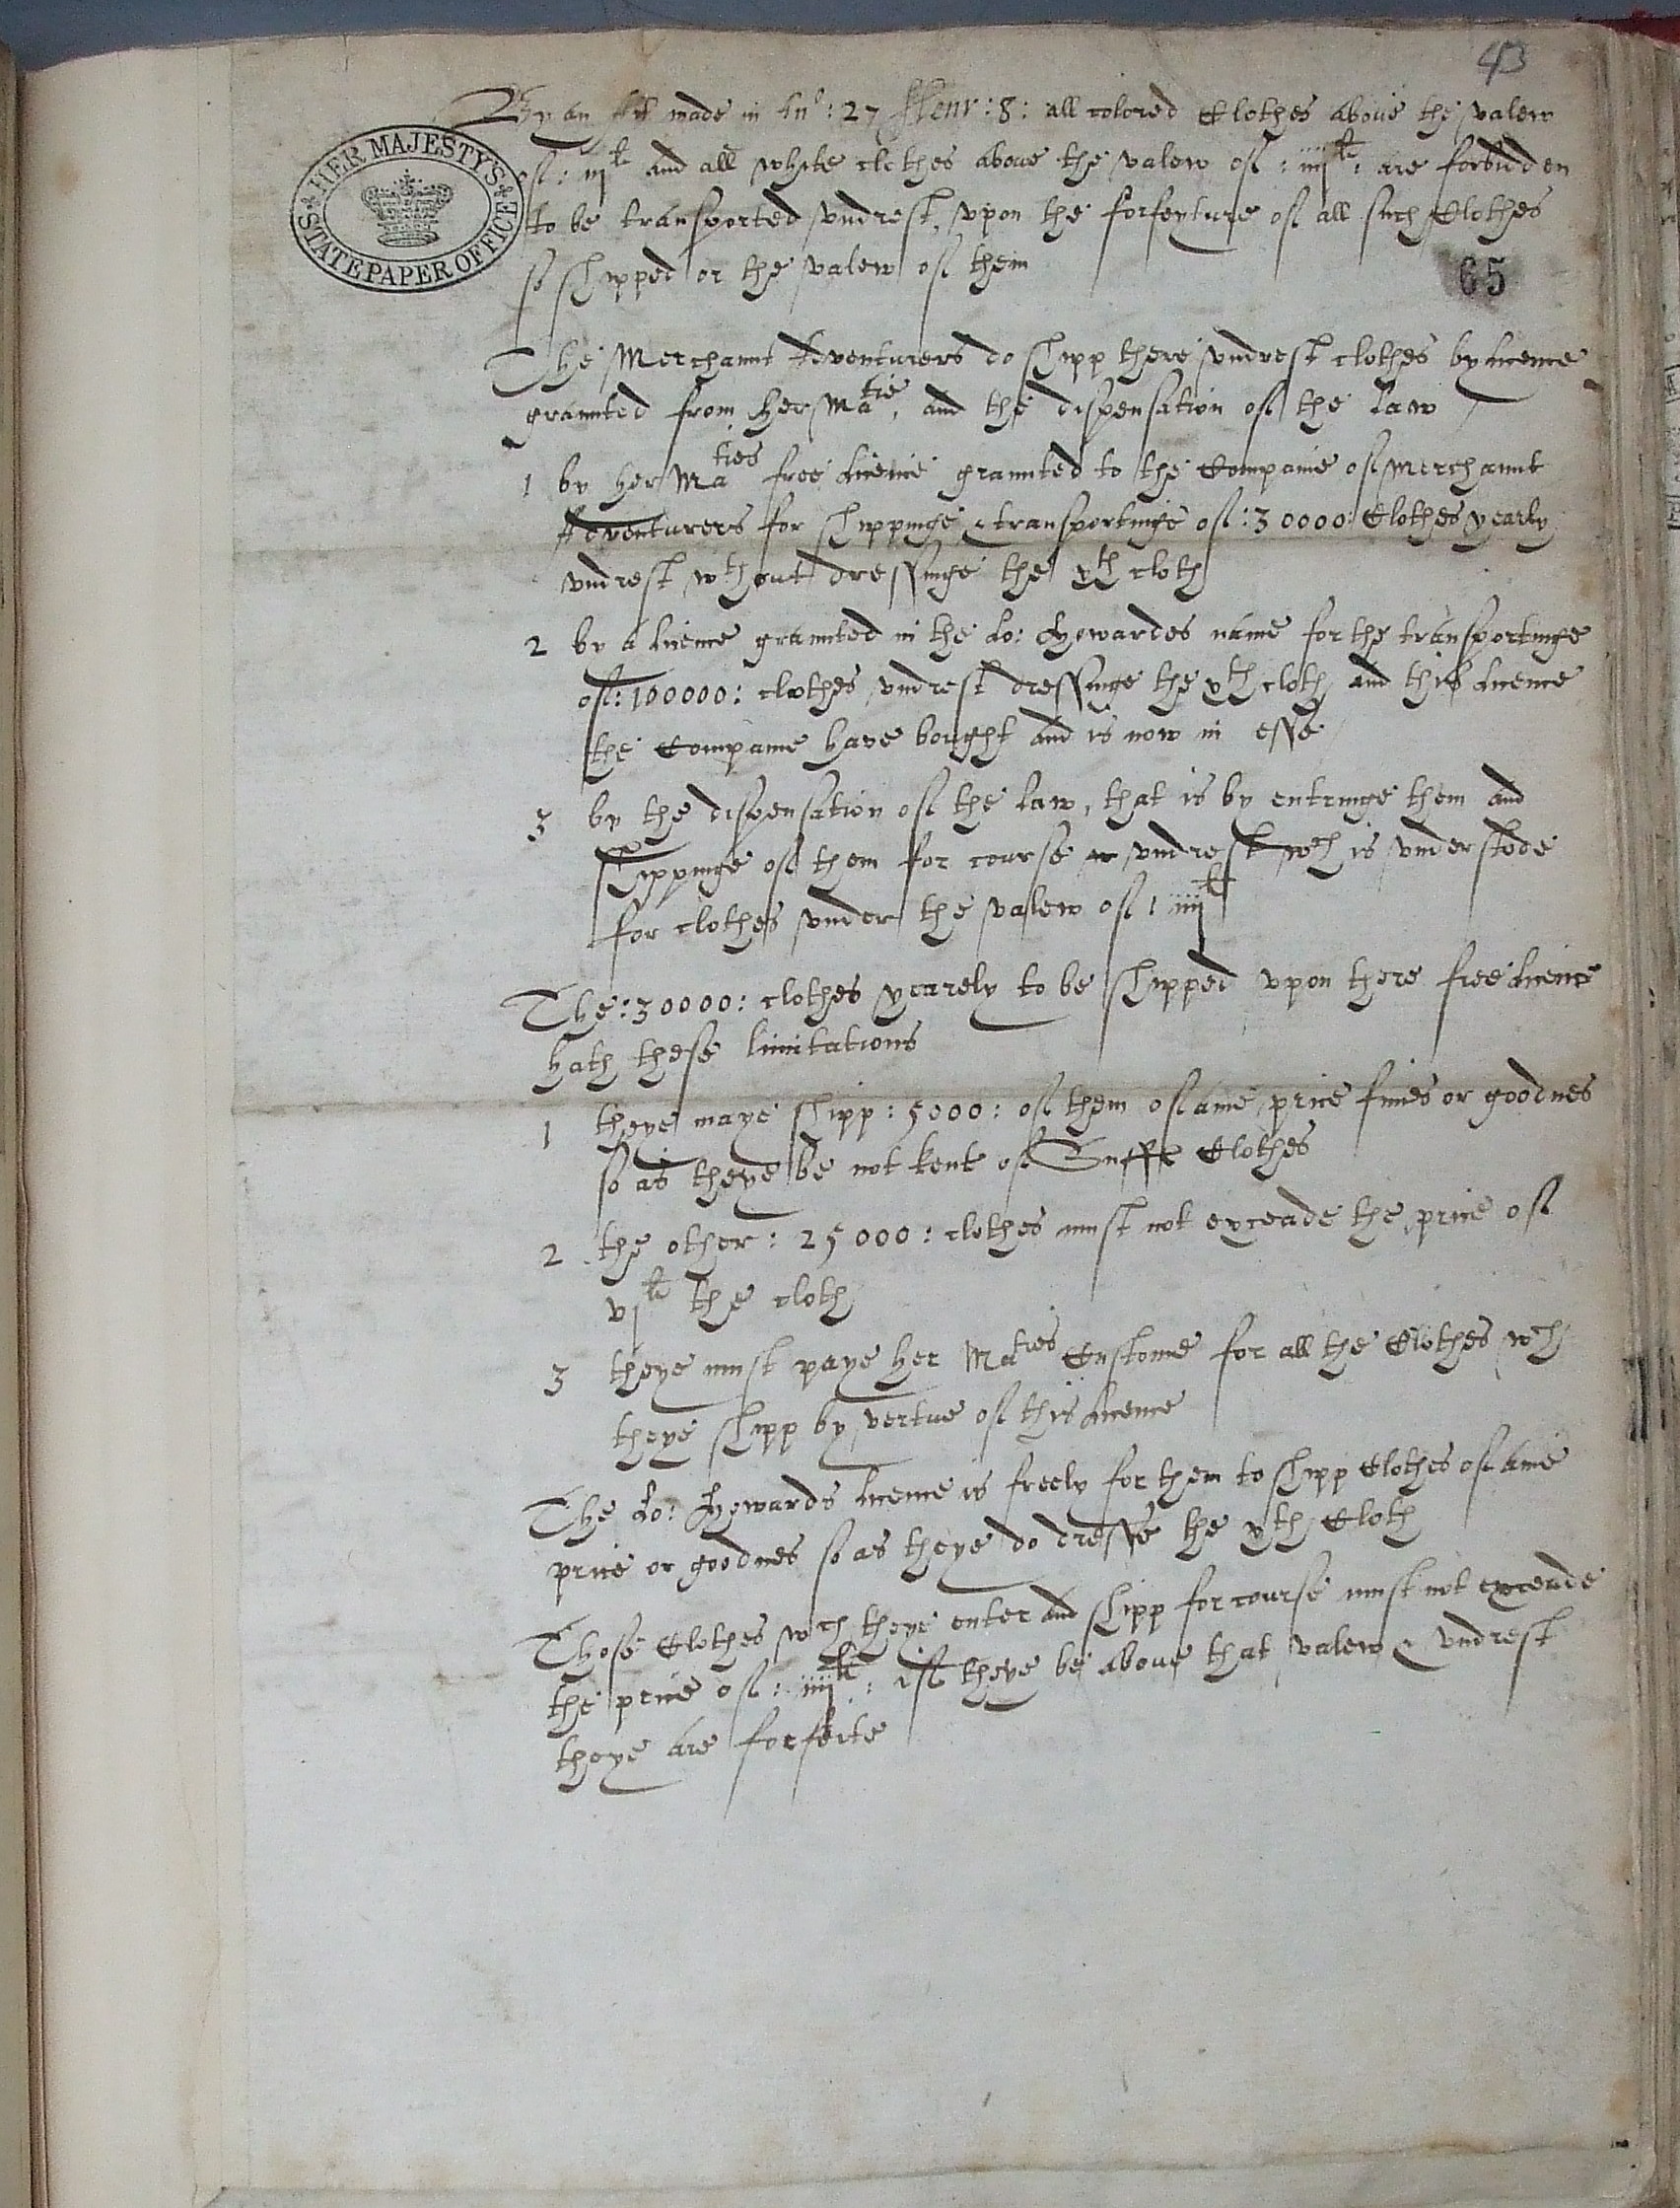 43
By an Act made in Ano: 27 Henr: 8: all colored Clothes above the valew
of: iijli and all white clothes above the valew of: iiijli: are forbidden
to be transported vndrest, vpon the forfeyture of all such Clothes
so shipped or the valew of them
65
HER MAJESTY'S
STATE PAPER OFFICE
The Merchannt Adventurers do shipp there vndrest clothes by licence
grannted from her Matie, and the dispensation of the law
1 by her Maties free licence grannted to the Companie of Merchannt
Adventurers for shippinge & transportinge of: 30000: Clothes yearly
vndrest wthout dressinge the xth cloth
2 by a licence grannted in the Lo: Howardes name for the transportinge
of: 100000: clothes vndrest dressinge the xth cloth and this licence
the Companie have bought and is now in esse
3 by the dispensation of the law, that is by entringe them and
shippinge of them for course vndrest wch is vnderstode
for clothes vnder the valew of: iiijli
The: 30000: clothes yearely to be shipped vpon there free licence
hath these limitations
1 theye maye shipp: 5000: of them of anie price fines or goodnes
so as theye be not kent of Suffk Clothes
2 the other: 25000: clothes must not exceade the price of
vjli the cloth
3 theye must paye her Maties Custome for all the Clothes wch
theye shipp by vertue of this licence
The Lo: Howards licence is freely for them to shipp Clothes of anie
price or goodnes so as theye do dresse the xth Cloth
Those Clothes wch theye enter and shipp for course must not exceade
the price of: iiijli: if theye be above that valew & vndrest
theye are forfeite